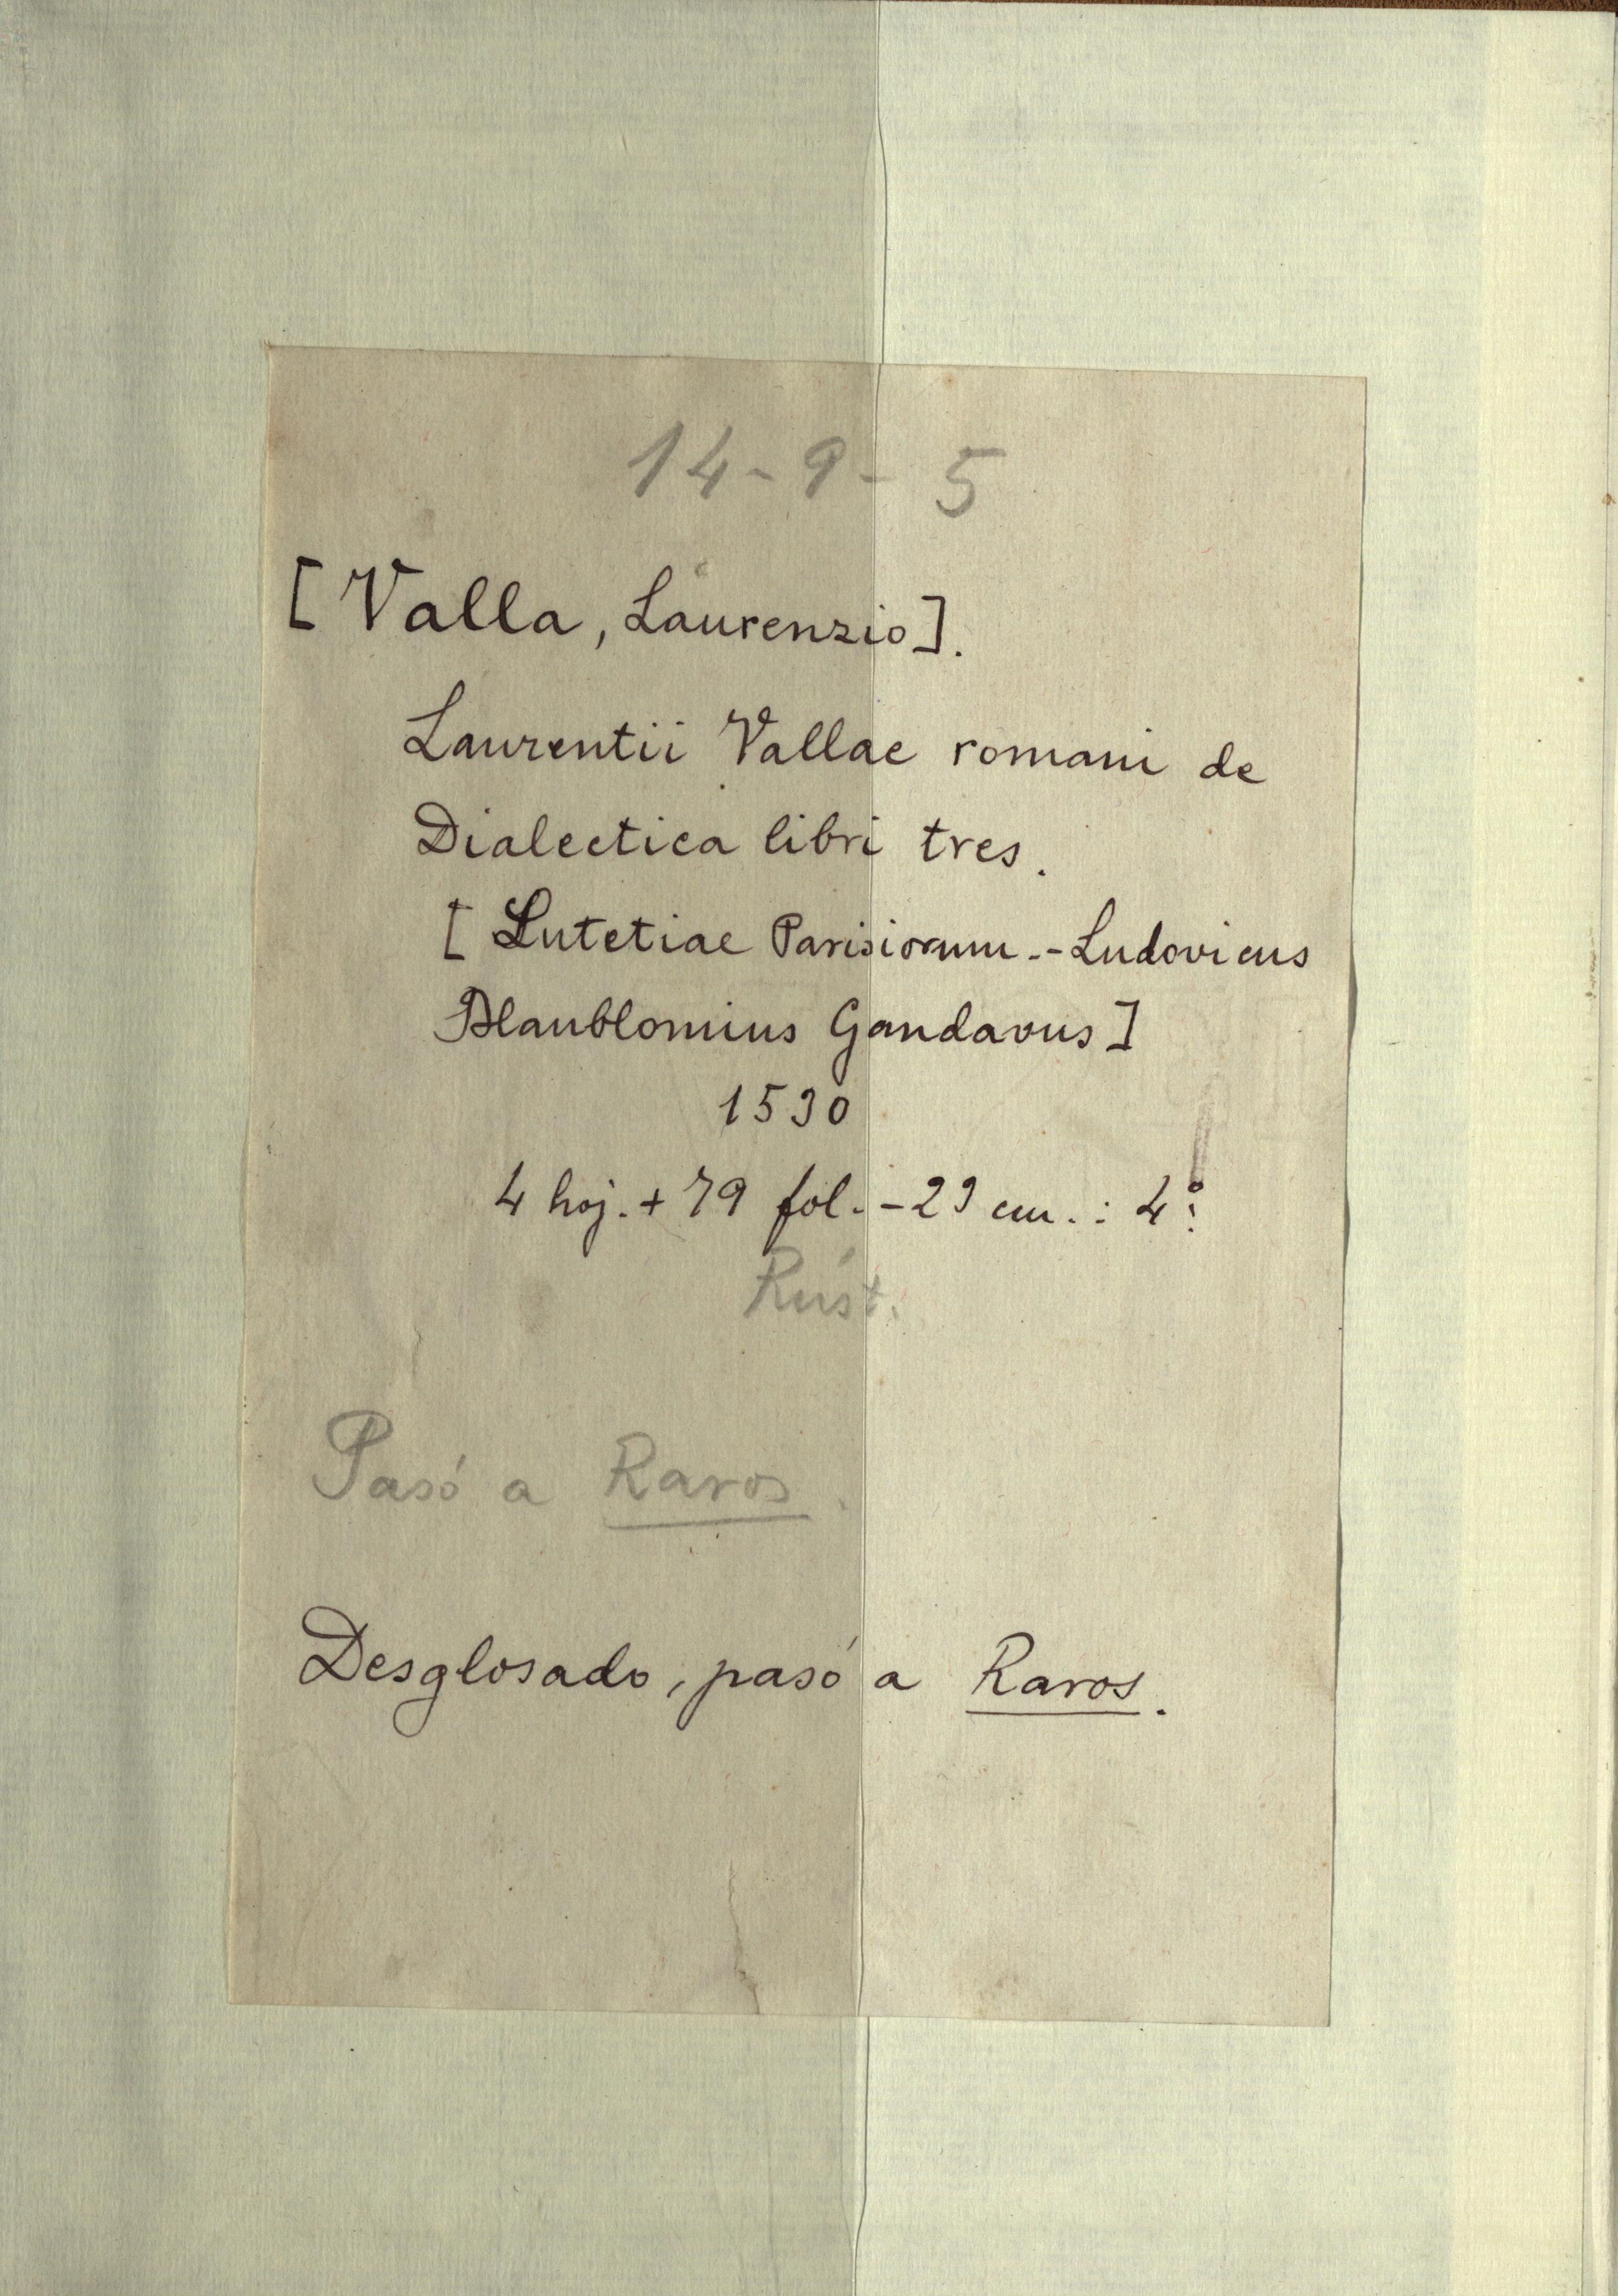 14-9-5
[Valla, Laurenzio].
Laurentii Vallae romani de
Dialectica libri tres.
[Lutetiae Parisiorum.-Ludovicus
Blaublomius Gandavus]
1530
4 hoj. + 79 fol. - 23 cm. : 4º
Rúst.
Pasó a Raros.
Desglosado, pasó a Raros.